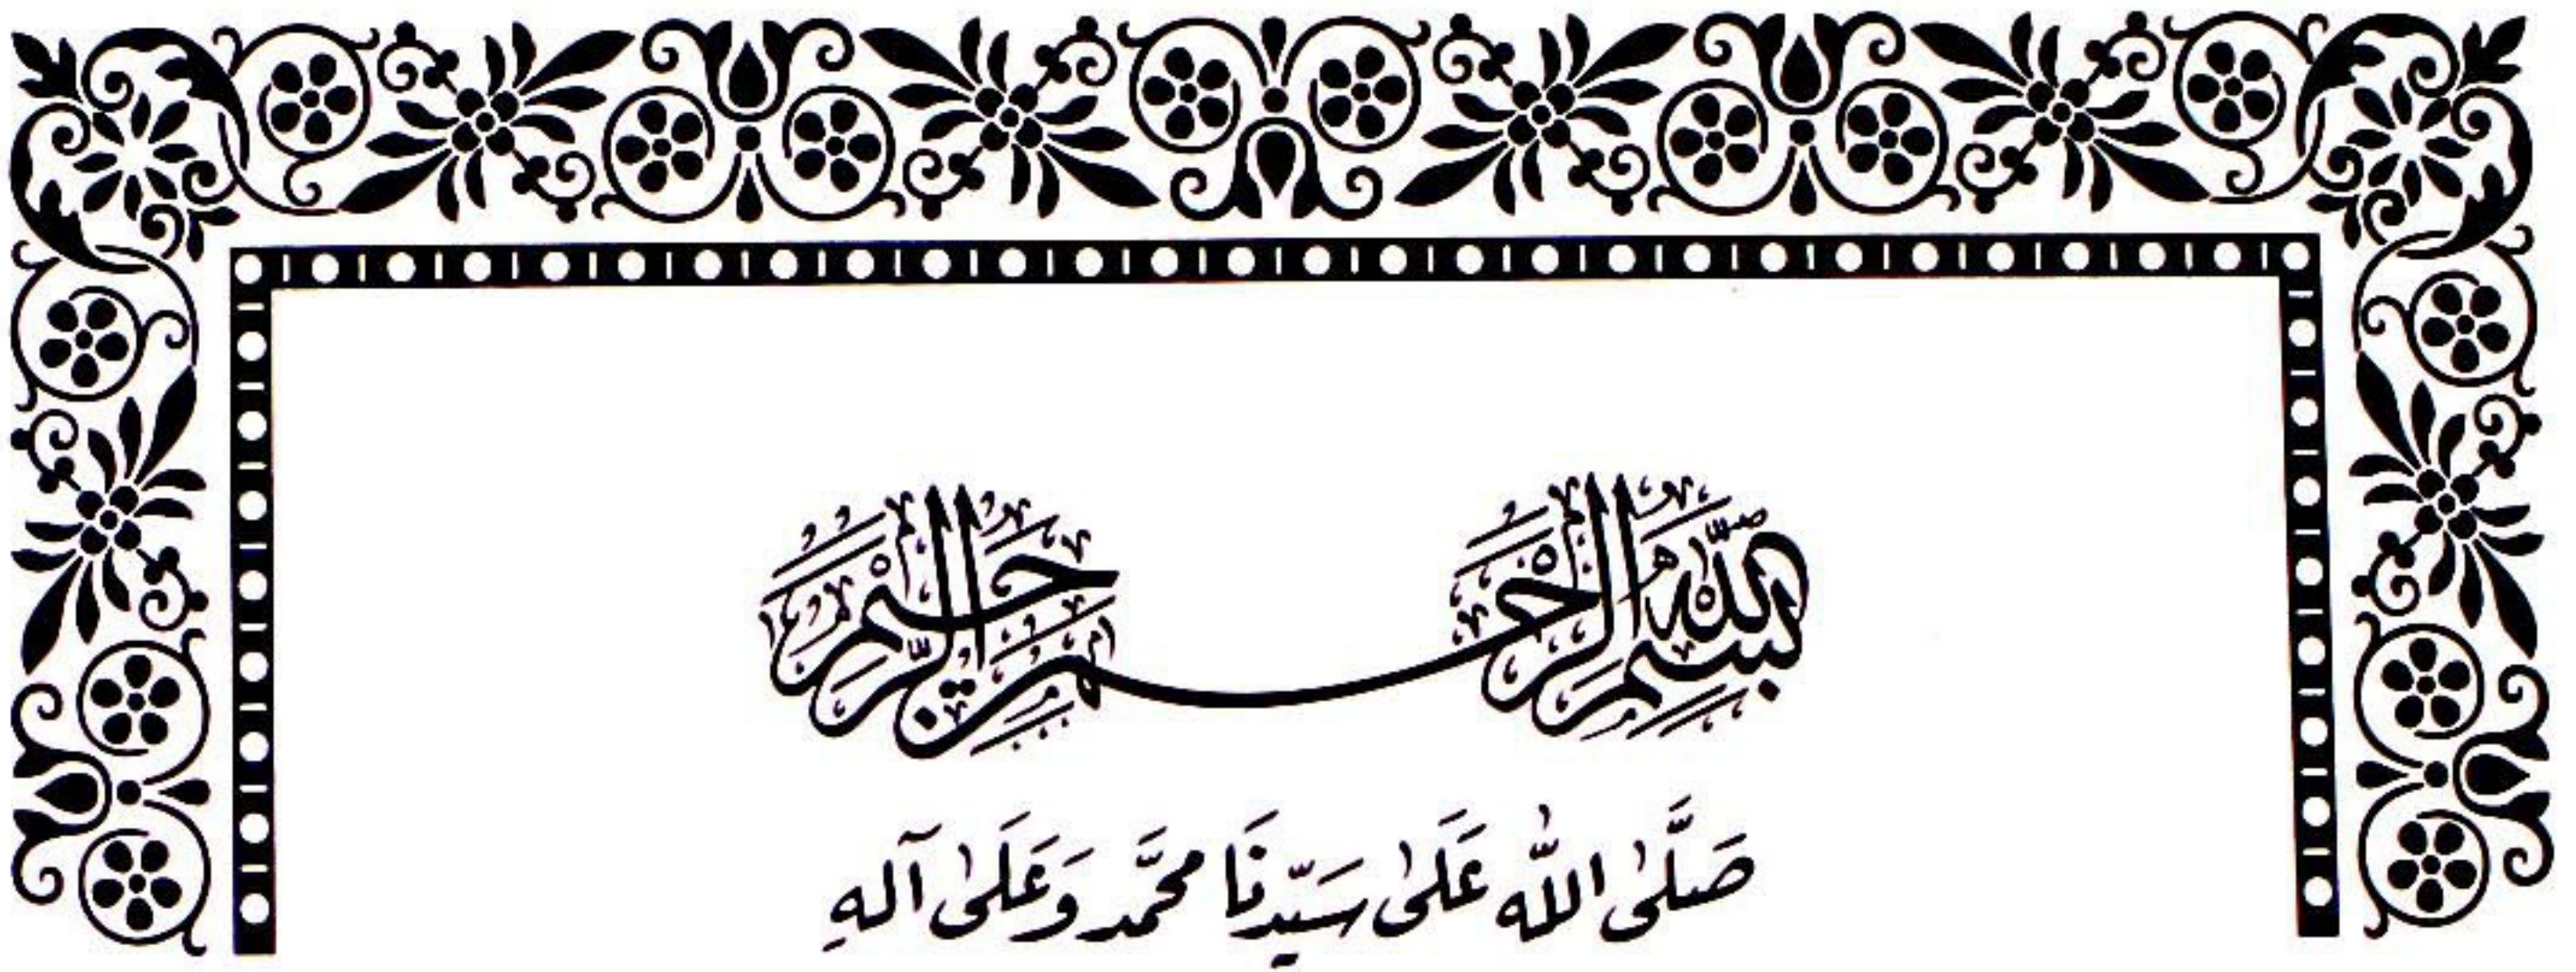 بسم الله الرحمن الرحيم
صَلَّى اللّٰه عَلَىٰ سَيِّدِنَا مُحَمَّد وَعَلَىٰ آلهِ